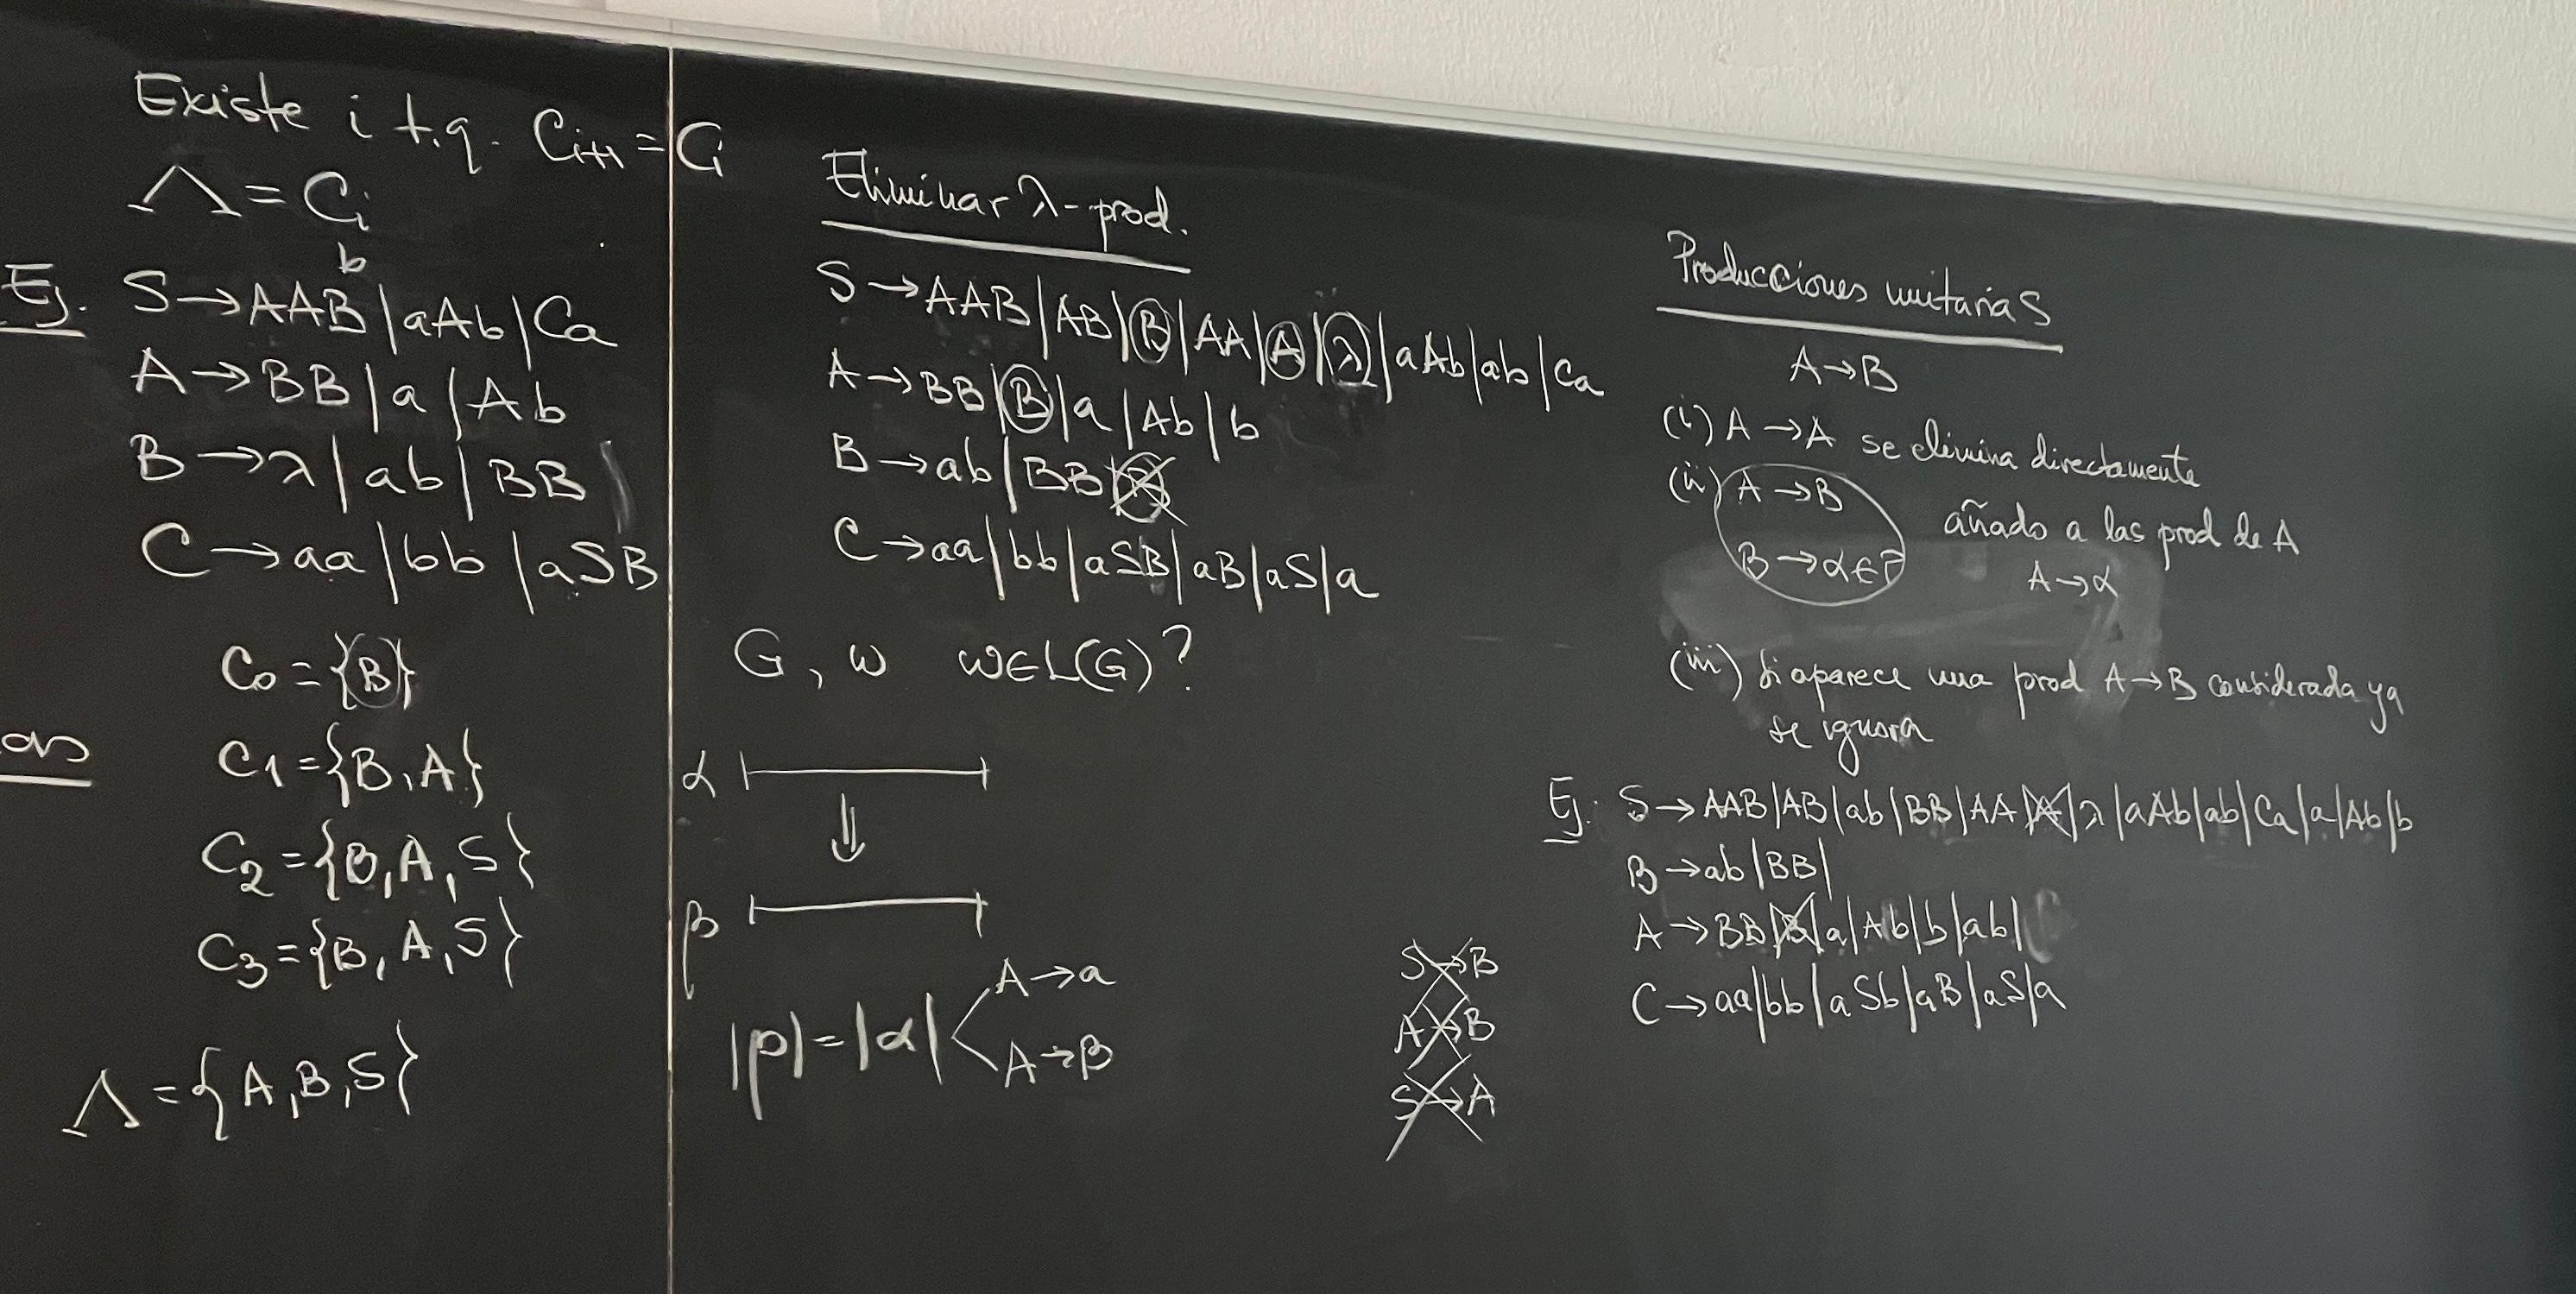 Existe i t.q. Ci+1 = Ci
Λ = Ci
b
Ej. S → AAB | aAb | Ca
A → BB | a | Ab
B → λ | ab | BB
C → aa | bb | aSB
C0 = {B}
C1 = {B, A}
C2 = {B, A, S}
C3 = {B, A, S}
Λ = {A, B, S}
Eliminar λ-prod.
S → AAB | AB | B | AA | A | λ | aAb | ab | Ca
A → BB | B | a | Ab | b
B → ab | BB
C → aa | bb | aSB | aB | aS | a
G, w w ∈ L(G)?
α
⇓
β
|β| = |α|
A → a
A → B
Producciones unitarias
A → B
(i) A → A se elimina directamente
(ii) A → B
B → α ∈ P
añado a las prod de A
A → α
(iii) Si aparece una prod A → B considerada ya
se ignora
Ej. S → AAB | AB | ab | BB | AA | A | λ | aAb | ab | Ca | a | Ab | b
B → ab | BB |
A → BB | B | a | Ab | b | ab |
C → aa | bb | aSb | aB | aS | a
S → B
A → B
S → A